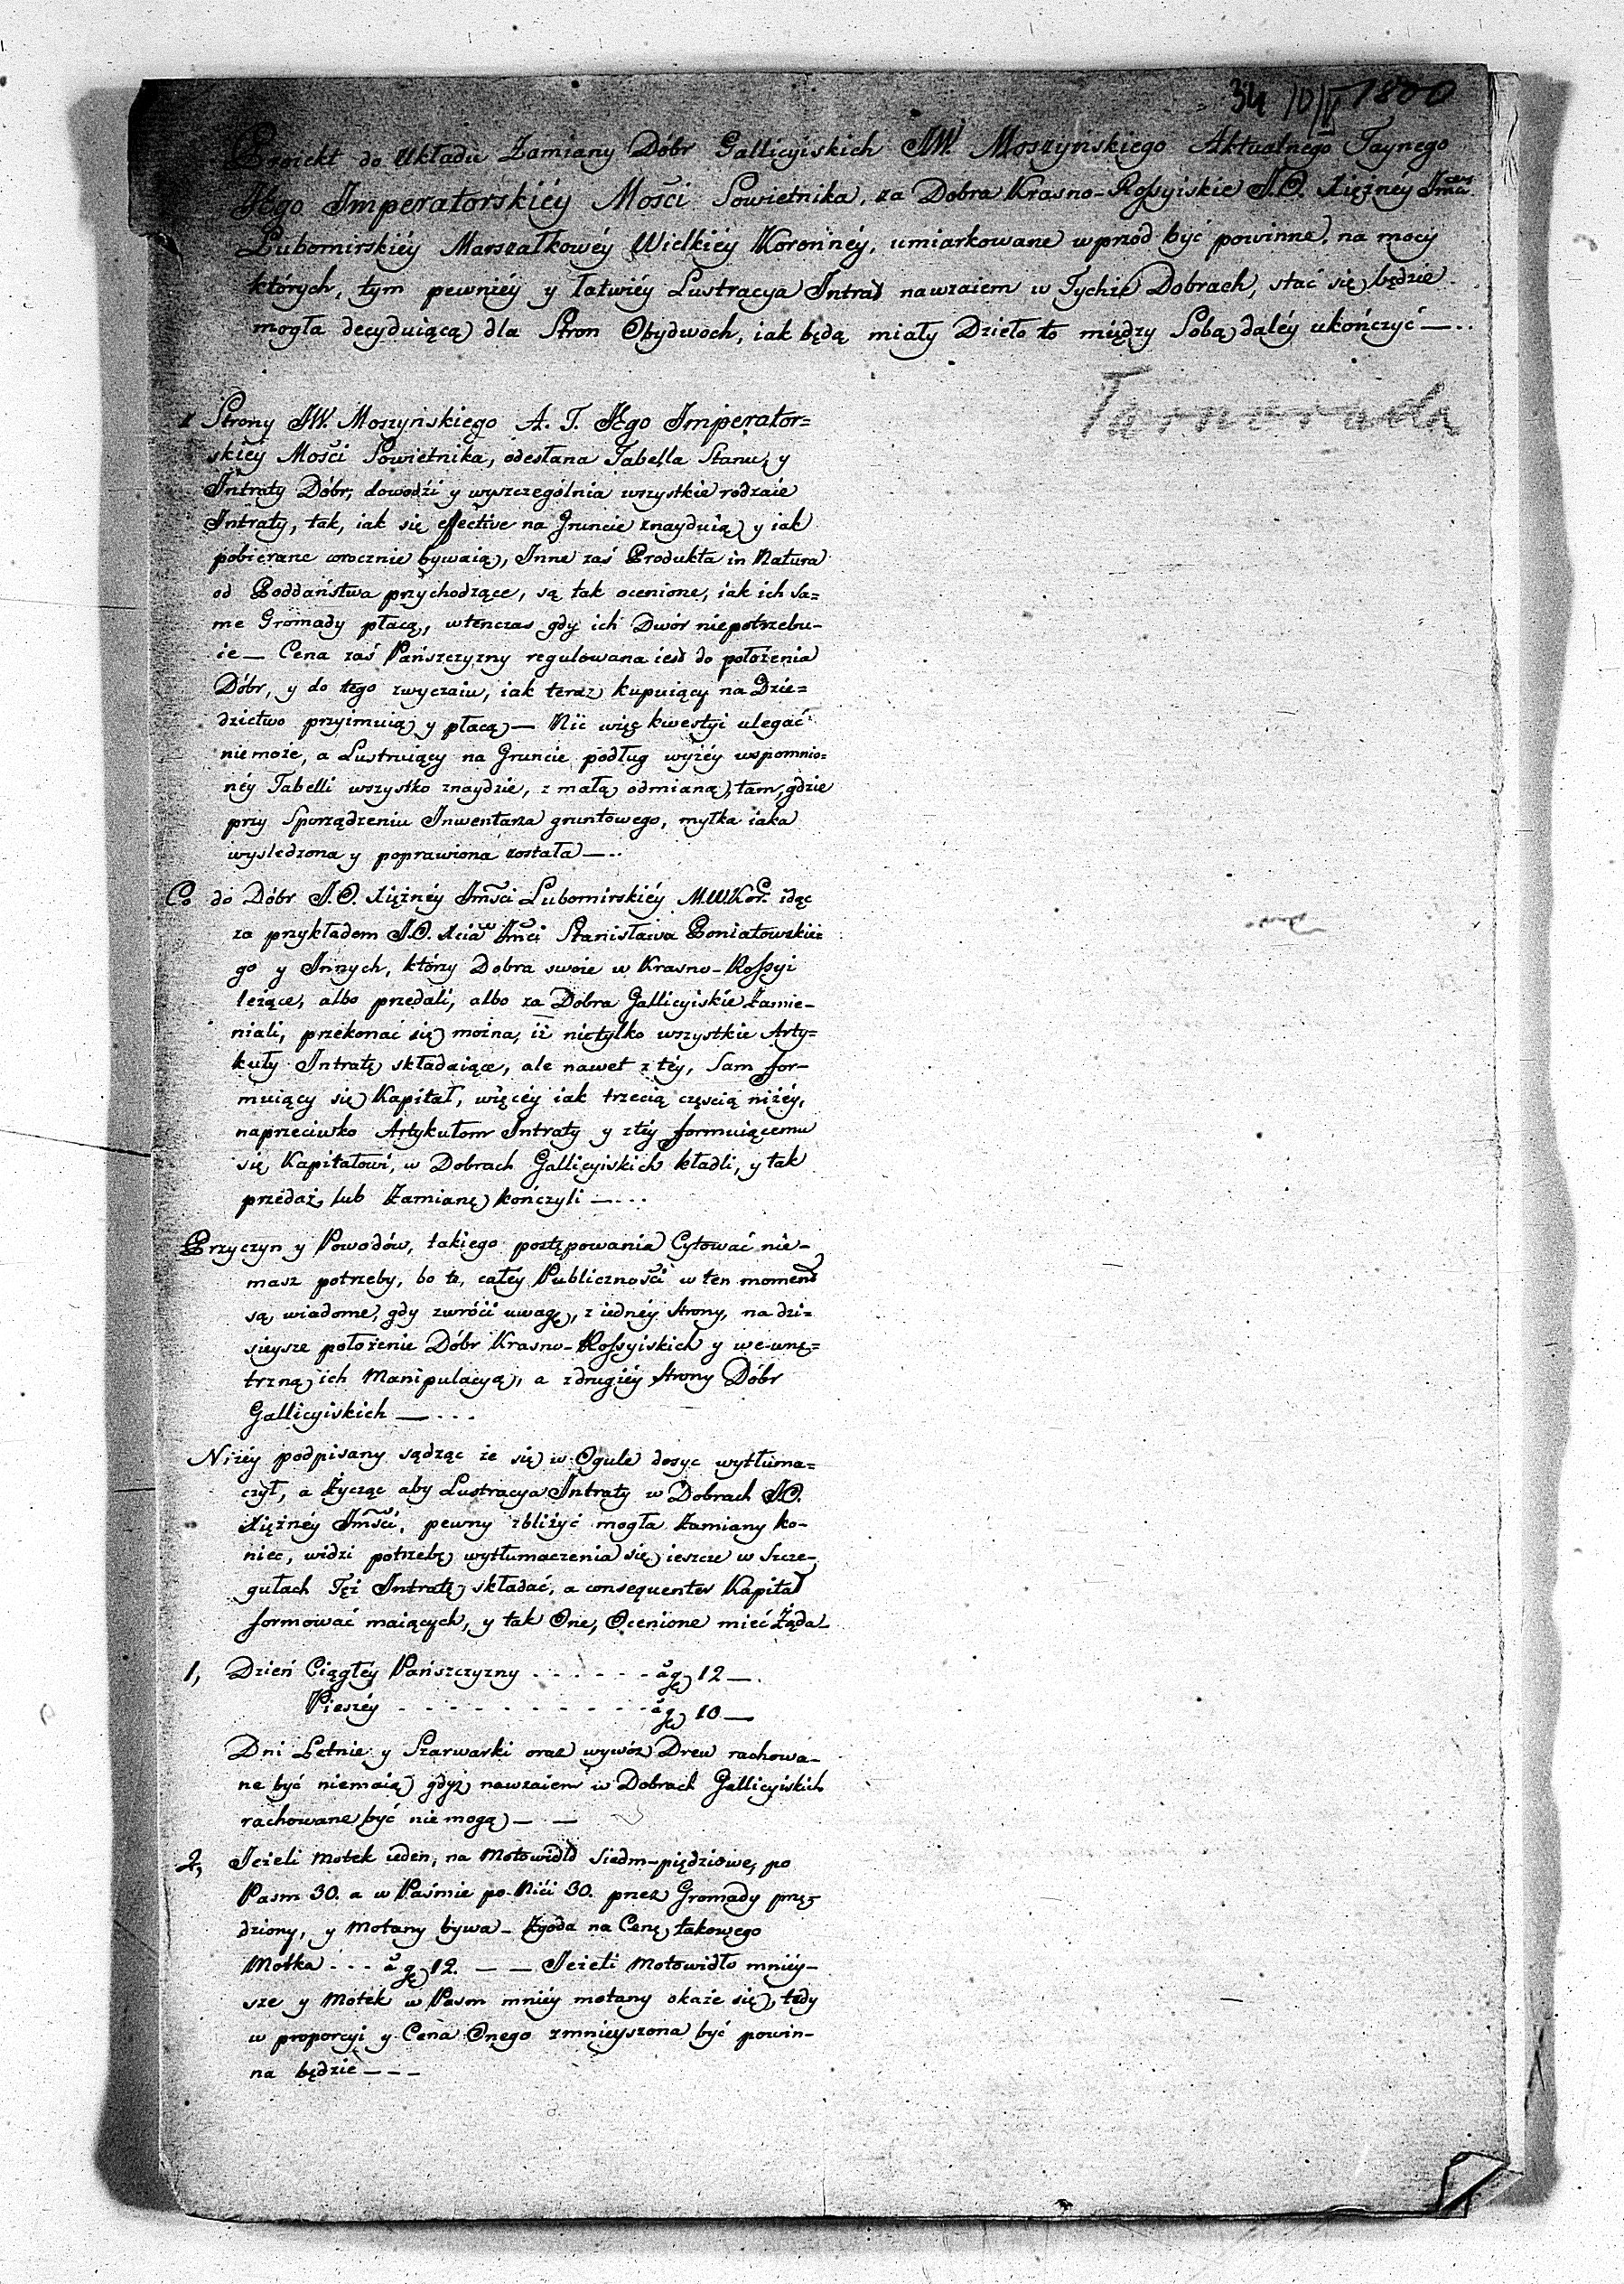 34 10/IV 1800
Proiekt do Układu Zamiany Dóbr Gallicyiskich JW. Moszyńskiego Aktualnego Taynego
JEgo Imperatorskiéy Mości Sowietnika, za Dobra Krasno-Rossyiskie J.O. Xiężnéy Jmci
Lubomirskiéy Marszałkowéy Wielkiéy Koronnéy, umiarkowane wprzód być powinne, na mocy
których, tym pewniéy y łatwiéy Lustracya Intrat nawzaiem w Tychże Dobrach, stać się będzie
mogła decyduiącą dla Stron Obydwoch, iak będą miały Dzieło to między Sobą daléy ukończyć —..
Tarnoruda
Z Strony JW. Moszyńskiego A. T. JEgo Imperator=
skiéy Mości Sowietnika, odesłana Tabella Stanu, y
Intraty Dóbr, dowodzi y wyszczególnia wszystkie rodzaie
Intraty, tak, iak się effective na Gruncie znayduią y iak
pobierane corocznie bywaią, Inne zaś Produkta in Natura
od Poddaństwa przychodzące, są tak ocenione, iak ich Sa=
me Gromady płacą, wtenczas gdy ich Dwór niepotrzebu-
ie — Cena zaś Pańszczyzny regulowana iest do położenia
Dóbr, y do tego zwyczaiu, iak teraz kupuiący na Dzie=
dzictwo przyimuią y płacą — Nic więc kwestyi ulegać
niemoże, a Lustruiący na Gruncie podług wyżéy wspomnio=
néy Tabelli wszystko znaydzie, z małą odmianą, tam, gdzie
przy Sporządzeniu Inwentarza gruntowego, myłka iaka
wysledzona y poprawiona została —..
Co do Dóbr J.O. Xiężnéy Jmści Lubomirskiéy M.W.Kor. idąc
za przykładem J.O. Xcia Jmci Stanisława Poniatowskie=
go y Innych, którzy Dobra swoie w Krasno-Rossyi
leżące, albo przedali, albo za Dobra Gallicyiskie Zamie-
niali, przekonać się można, iż nietylko wszystkie Arty=
kuły Intratę składaiące, ale nawet z téy, Sam for-
muiący się Kapitał, więcéy iak trzecią częscią niżéy,
naprzeciwko Artykułom Intraty y z téy formuiącemu
się Kapitałowi, w Dobrach Gallicyiskich kładli, y tak
przedaż, lub Zamianę kończyli —...
Przyczyn y Powodów, takiego postępowania Cytować nie-
masz potrzeby, bo te, całéy Publiczności w ten moment
są wiadome, gdy zwróci uwagę, z iednéy strony, na dzi=
sieysze położenie Dóbr Krasno-Rossyiskich y we-wnę=
trzną ich Manipulacyą, a z drugiéy strony Dóbr
Gallicyiskich —...
Niżéy podpisany sądząc że się w Ogule dosyc wytłuma=
czył, a Życząc aby Lustracya Intraty w Dobrach J.O.
Xiężnéy Jmści, pewny zbliżyć mogła Zamiany ko-
niec, widzi potrzebę wytłumaczenia się ieszcze w Szcze-
gułach Też Intratę składać, a consequenter Kapitał
formować maiących, y tak One, Ocenione mieć Żąda-
1, Dzień Ciągłéy Pańszczyzny . - - - - - - à gę 12 —.
Pieszéy - - - - - - - - - - - à gę 10 —
Dni Letnie y Szarwarki oraz wywóz Drew rachowa-
ne być niemaią gdyż nawzaiem w Dobrach Gallicyiskich
rachowane być nie mogą — —
2, Jeżeli motek ieden, na Motowidło Siedm-piędziowe, po
Pasm 30. a w Paśmie po Nici 30. przez Gromady przę=
dziony, y motany bywa - Zgoda na Cenę takowego
Motka - - - à gę 12. — — Jeżeli Motowidło mniéy-
sze y Motek w Pasm mniéy motany okaże się, tedy
w proporcyi y Cena Onego zmnieyszona być powin-
na będzie — — —